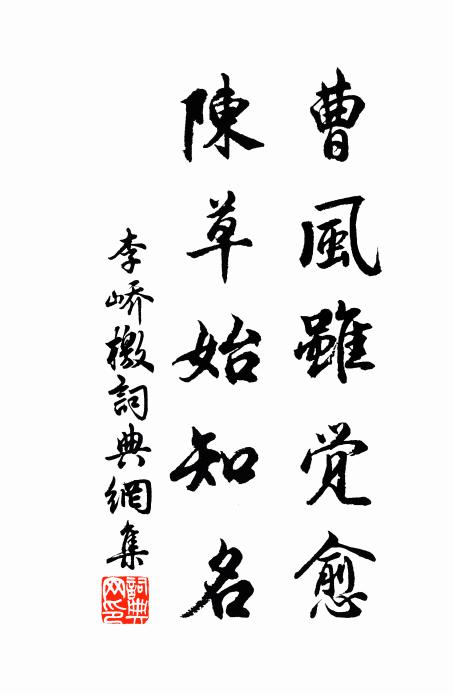 曹風雖觉愈
陳草始知名
李嶠檄詞典網集
詞典網印